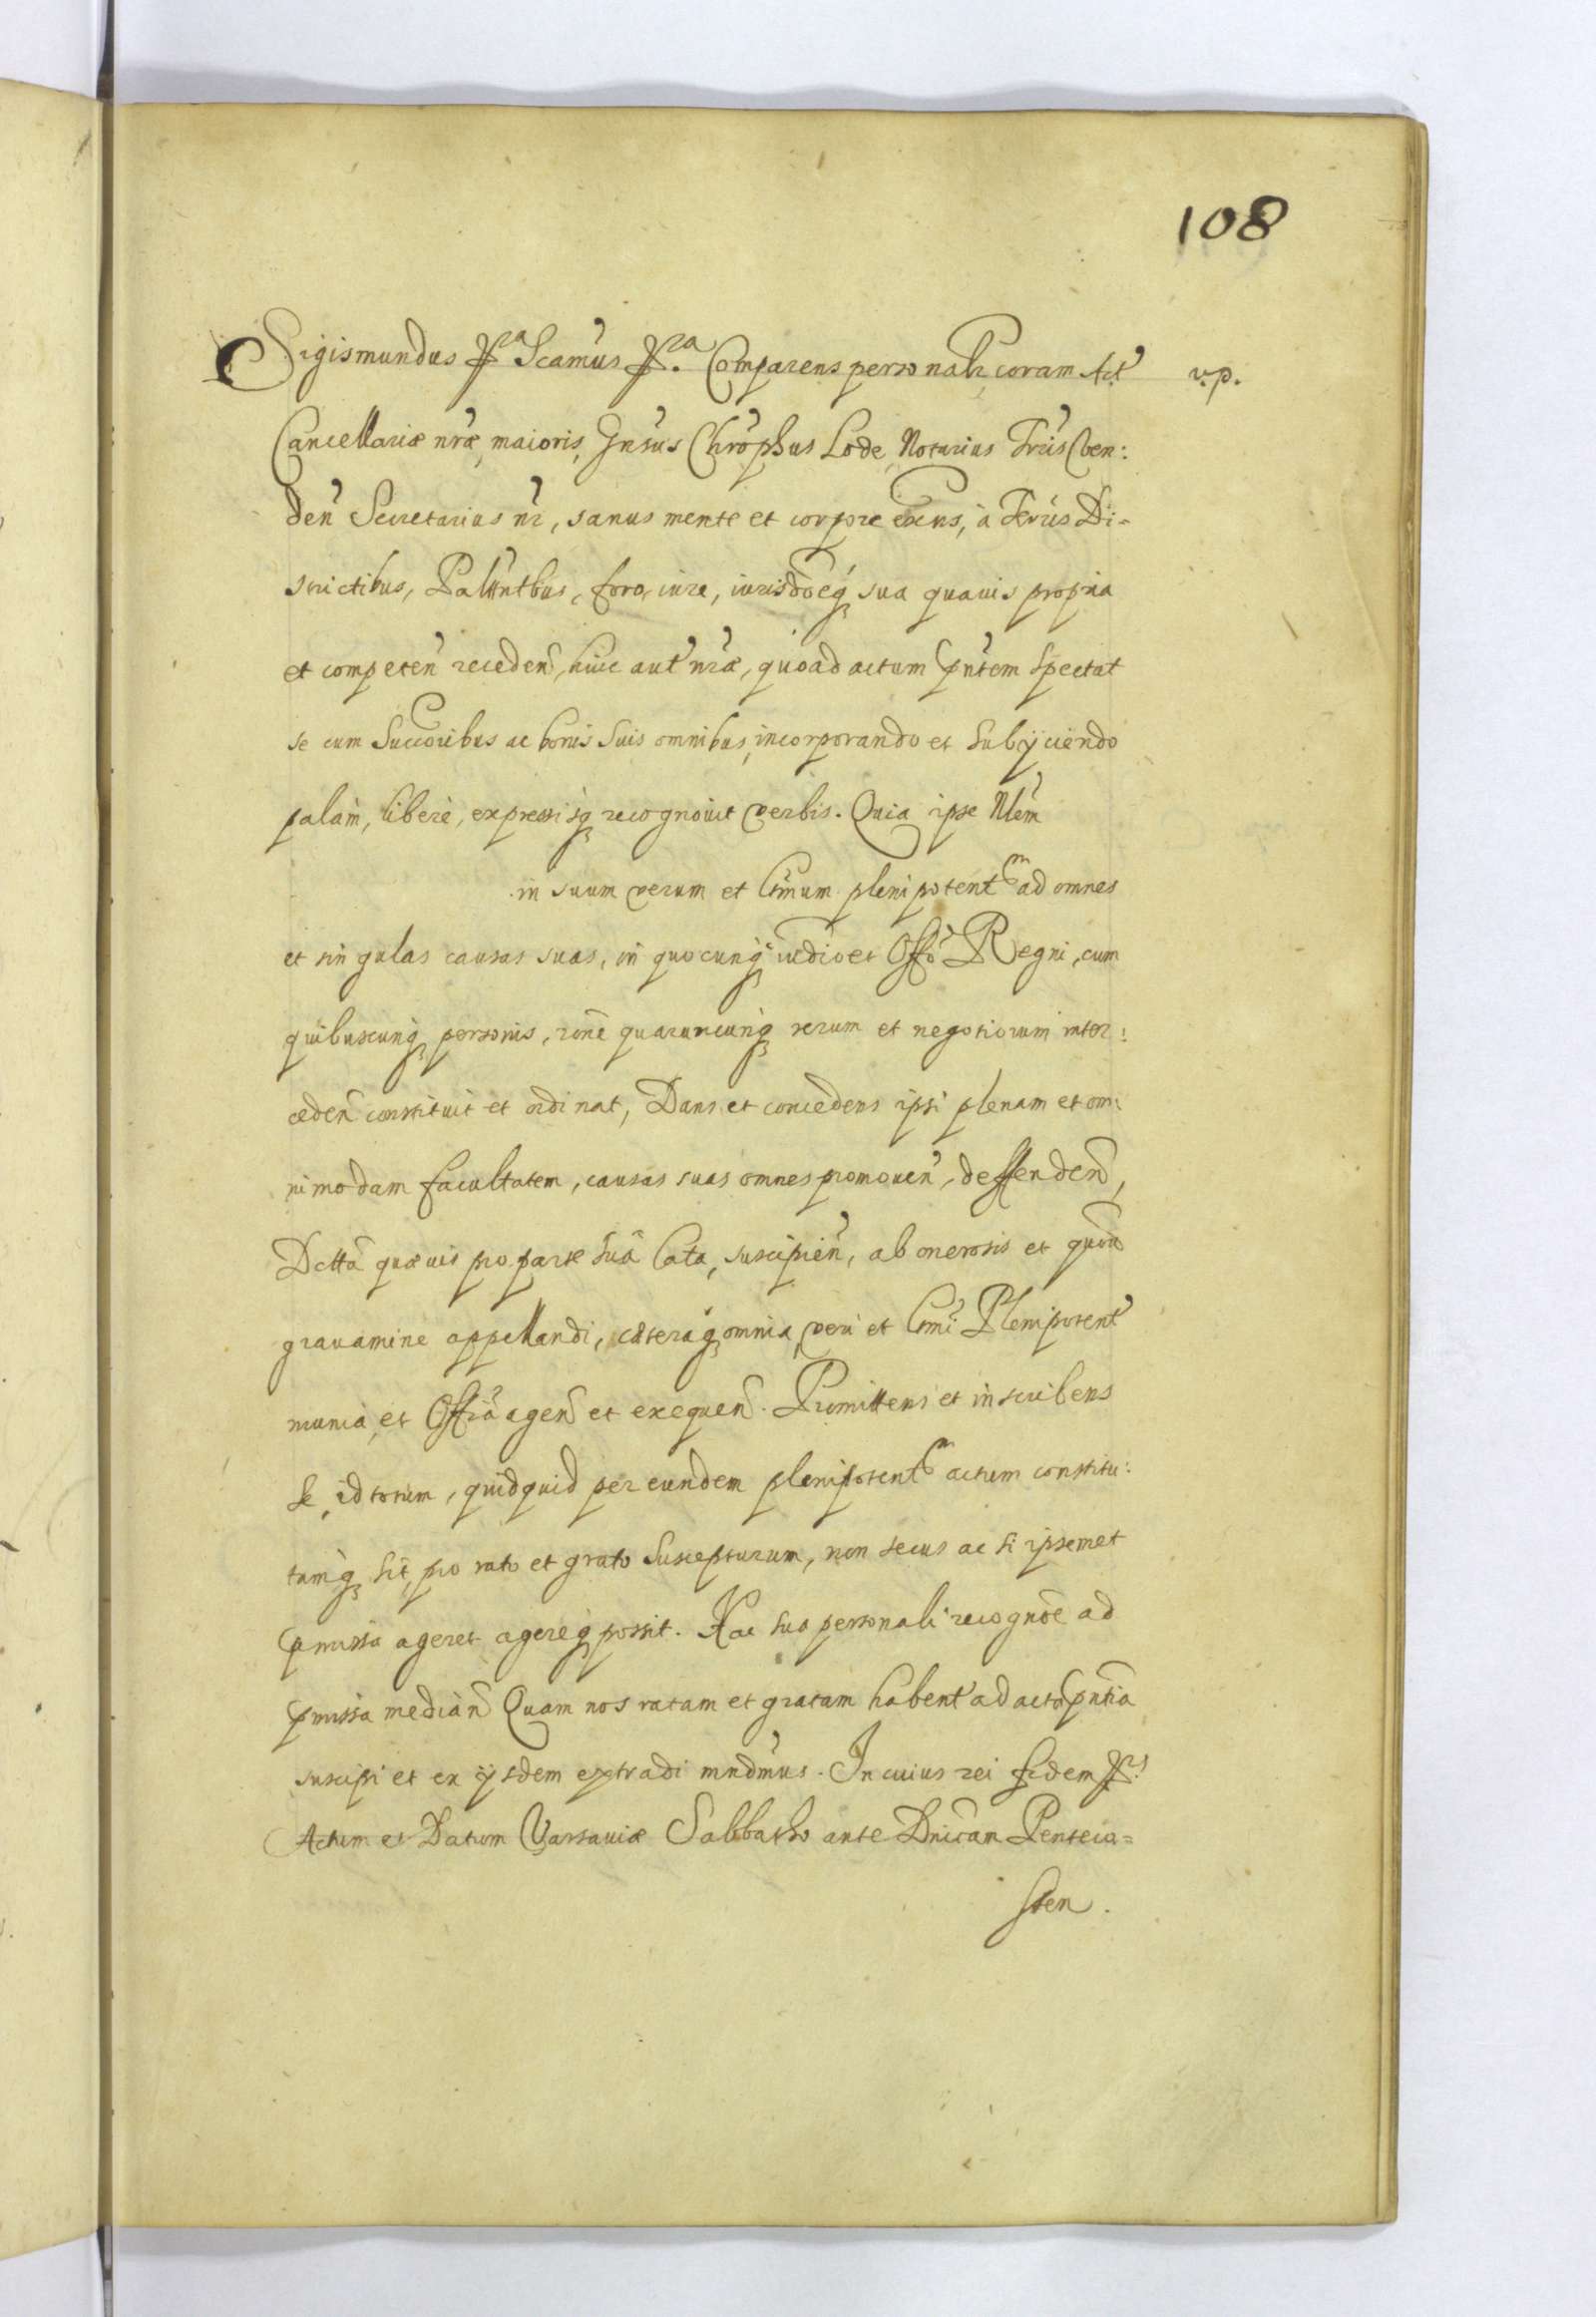 108
Sigismundus &ra Scamus &ra. Comparens personalr coram Act v.p.
Cancellariæ nræ maioris, Gnsus Chrophus Lode Notarius Trūs Ven:
den Secretarius nr, sanus mente et corpore exens, à Terris Di-
strictibus, Palūntbus, foro, iure, iurisdōeq sua quauis propria
et competen receden, huic aut nræ, quoad actum pntem spectat
se cum Succoribus ac bonis suis omnibus, incorporando et subyciendo
palàm, liberè, expressisq recognouit verbis. Quia ipse Nlem
in suum verum et Ltmum plenipotentem ad omnes
et singulas causas suas, in quocunq iudio et Offo Regni, cum
quibuscunq personis, rone quaruncunq rerum et negotiorum inter:
ceden constituit et ordinat, Dans et concedens ipsi plenam et om:
nimodam facultatem, causas suas omnes promouen, deffenden,
Dctta quæuis pro parte sua lata, suscipien, ab onerosis et quouis
grauamine appellandi, cæteraq omnia veri et Ltmi Plenipotent
munia, et Offia agen et exequen. Promittens et inscribens
se, id totum, quidquid per eundem plenipotentem actum constitu:
tumq sit, pro rato et grato suscepturum, non secus ac si ipsemet
pmissa ageret agereq possit. Hac sua personali recognōe ad
pmissa median Quam nos ratam et gratam habent ad acta pntia
suscipi et ex ysdem extradi mndmus. In cuius rei fidem &c.
Actum et Datum Varsauiæ Sabbatho ante Dnicam Penteco=
sten.